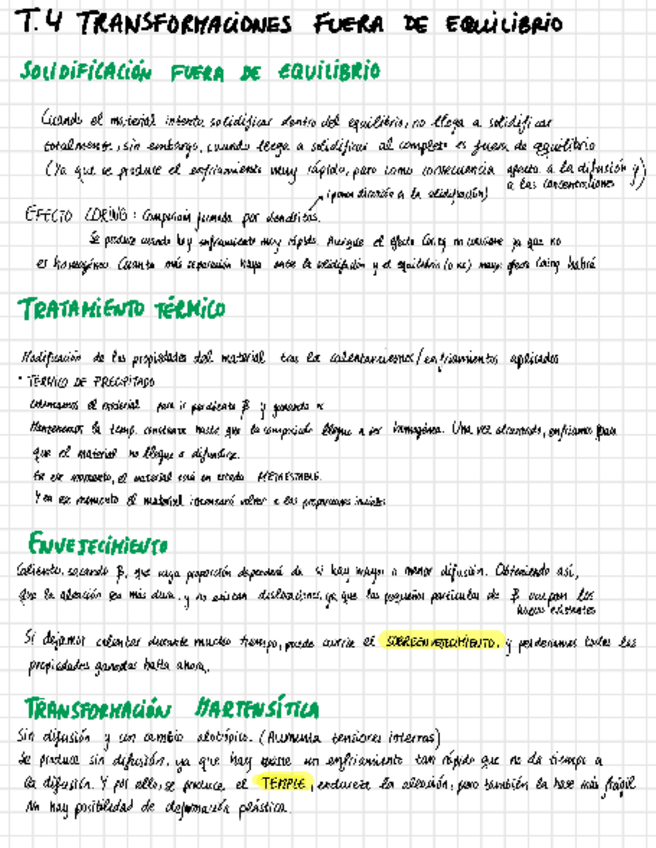 T.4 TRANSFORMACIONES FUERA DE EQUILIBRIO
SOLIDIFICACIÓN FUERA DE EQUILIBRIO
Cuando el material intenta solidificar dentro del equilibrio, no llega a solidificar
totalmente, sin embargo, cuando llega a solidificar al completo es fuera de equilibrio
(Ya que se produce el enfriamiento muy rápido, pero como consecuencia afecta a la difusión y)
a las concentraciones
(ponen dirección a la solidificación)
EFECTO CORING: Composición formada por dendritas.
Se produce cuando hay enfriamiento muy rápido. Aunque el efecto Coring no conviene ya que no
es homogéneo. Cuanta más separación haya entre la solidificación y el equilibrio (o no) mayor efecto coring habrá
TRATAMIENTO TÉRMICO
Modificación de las propiedades del material tras los calentamientos/enfriamientos aplicados
• TÉRMICO DE PRECIPITADO
Calentamos el material para ir perdiendo β y ganando α
Mantenemos la temp. constante hasta que la composición llegue a ser homogénea. Una vez alcanzado, enfriamos para
que el material no llegue a difundirse.
En ese momento, el material está en estado METAESTABLE.
Y en ese momento el material intentará volver a las proporciones iniciales
ENVEJECIMIENTO
Caliento, sacando β, que cuya proporción dependerá de si hay mayor o menor difusión. Obteniendo así,
que la aleación sea más dura. y no existan dislocaciones, ya que las pequeñas particulas de β ocupan los
huecos existentes
Si dejamos calentar durante mucho tiempo, puede ocurrir el SOBREENVEJECIMIENTO. y perderiamos todas las
propiedades ganadas hasta ahora.
TRANSFORMACIÓN MARTENSÍTICA
Sin difusión y con cambio alotópico. (Aumenta tensiones internas)
Se produce sin difusión, ya que hay un enfriamiento tan rápido que no da tiempo a
la difusión. Y por ello, se produce el TEMPLE, endurece la aleación, pero también la hace más frágil
No hay posibilidad de deformación plástica.